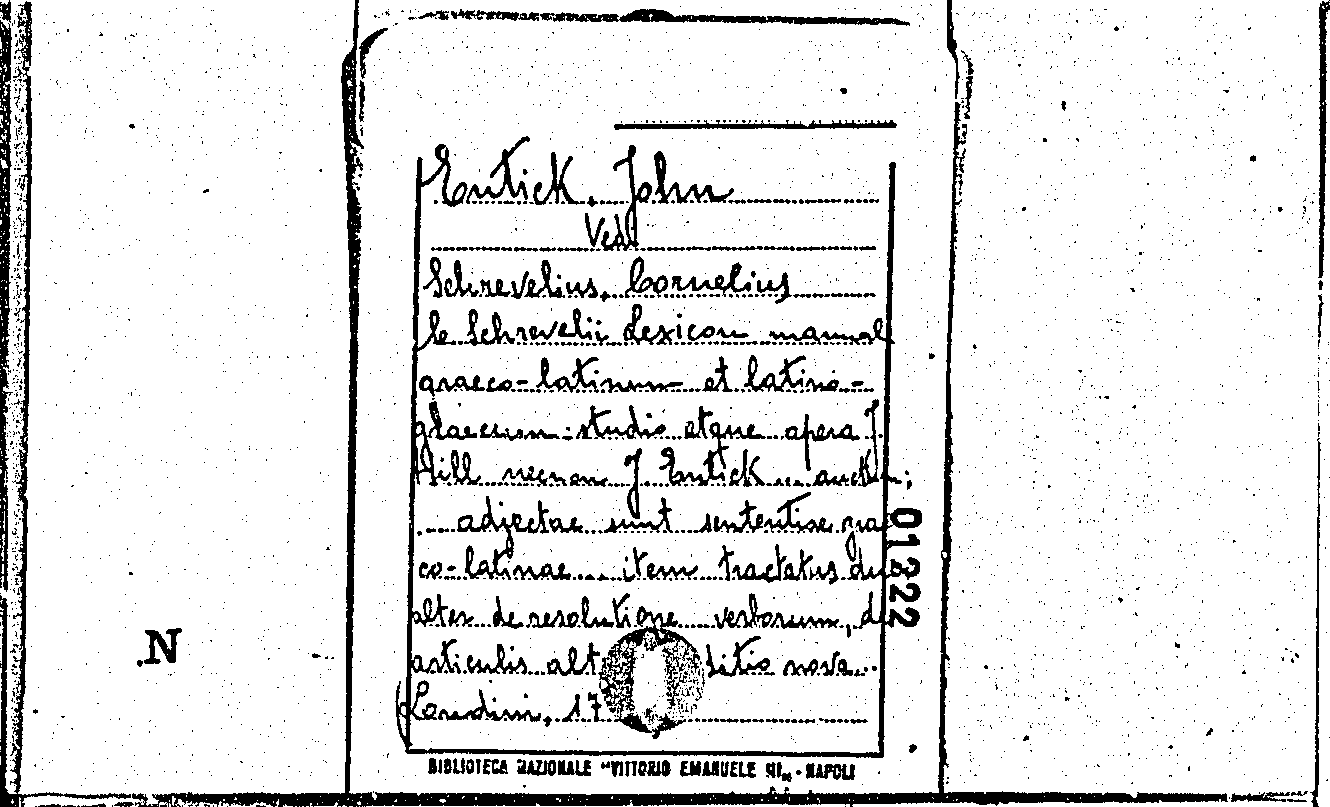 Entick, John
Vedi
Schrevelius, Cornelius
C. Schrevelii Lexicon manual
graeco-latinum et latino-
graecum: studio atque opera J.
Hill necnon J. Entick ... auctum;
... adjectae sunt sententiae grae
co-latinae... item tractatus duo
alter de resolutione verborum, de
articulis alt ditio nova...
Londini, 17
01222
.N
BIBLIOTECA NAZIONALE "VITTORIO EMANUELE III" - NAPOLI